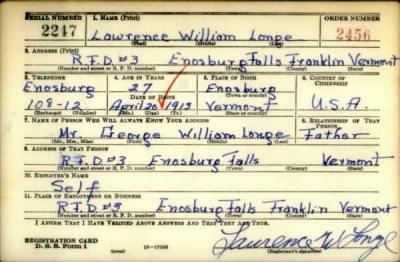 SERIAL NUMBER 1. NAME (Print) ORDER NUMBER
2247 Lawrence William Longe 2456
(First) (Middle) (Last)
2. ADDRESS (Print)
R.F.D #3 Enosburg Falls Franklin Vermont
(Number and street or R. F. D. number) (Town) (County) (State)
3. TELEPHONE 4. AGE IN YEARS 5. PLACE OF BIRTH 6. COUNTRY OF CITIZENSHIP
Enosburg 27 Enosburg
DATE OF BIRTH (Town or county)
108-12 April 20 1913 Vermont U.S.A.
(Exchange) (Number) (Mo.) (Day) (Yr.) (State or country)
7. NAME OF PERSON WHO WILL ALWAYS KNOW YOUR ADDRESS 8. RELATIONSHIP OF THAT PERSON
Mr. George William Longe Father
(Mr., Mrs., Miss) (First) (Middle) (Last)
9. ADDRESS OF THAT PERSON
R.F.D #3 Enosburg Falls Vermont
(Number and street or R. F. D. number) (Town) (County) (State)
10. EMPLOYER'S NAME
Self
11. PLACE OF EMPLOYMENT OR BUSINESS
R.F.D #3 Enosburg Falls Franklin Vermont
(Number and street or R. F. D. number) (Town) (County) (State)
I AFFIRM THAT I HAVE VERIFIED ABOVE ANSWERS AND THAT THEY ARE TRUE.
REGISTRATION CARD
D. S. S. Form 1
(over) 16-17105
Lawrence W Longe
(Registrant's signature)